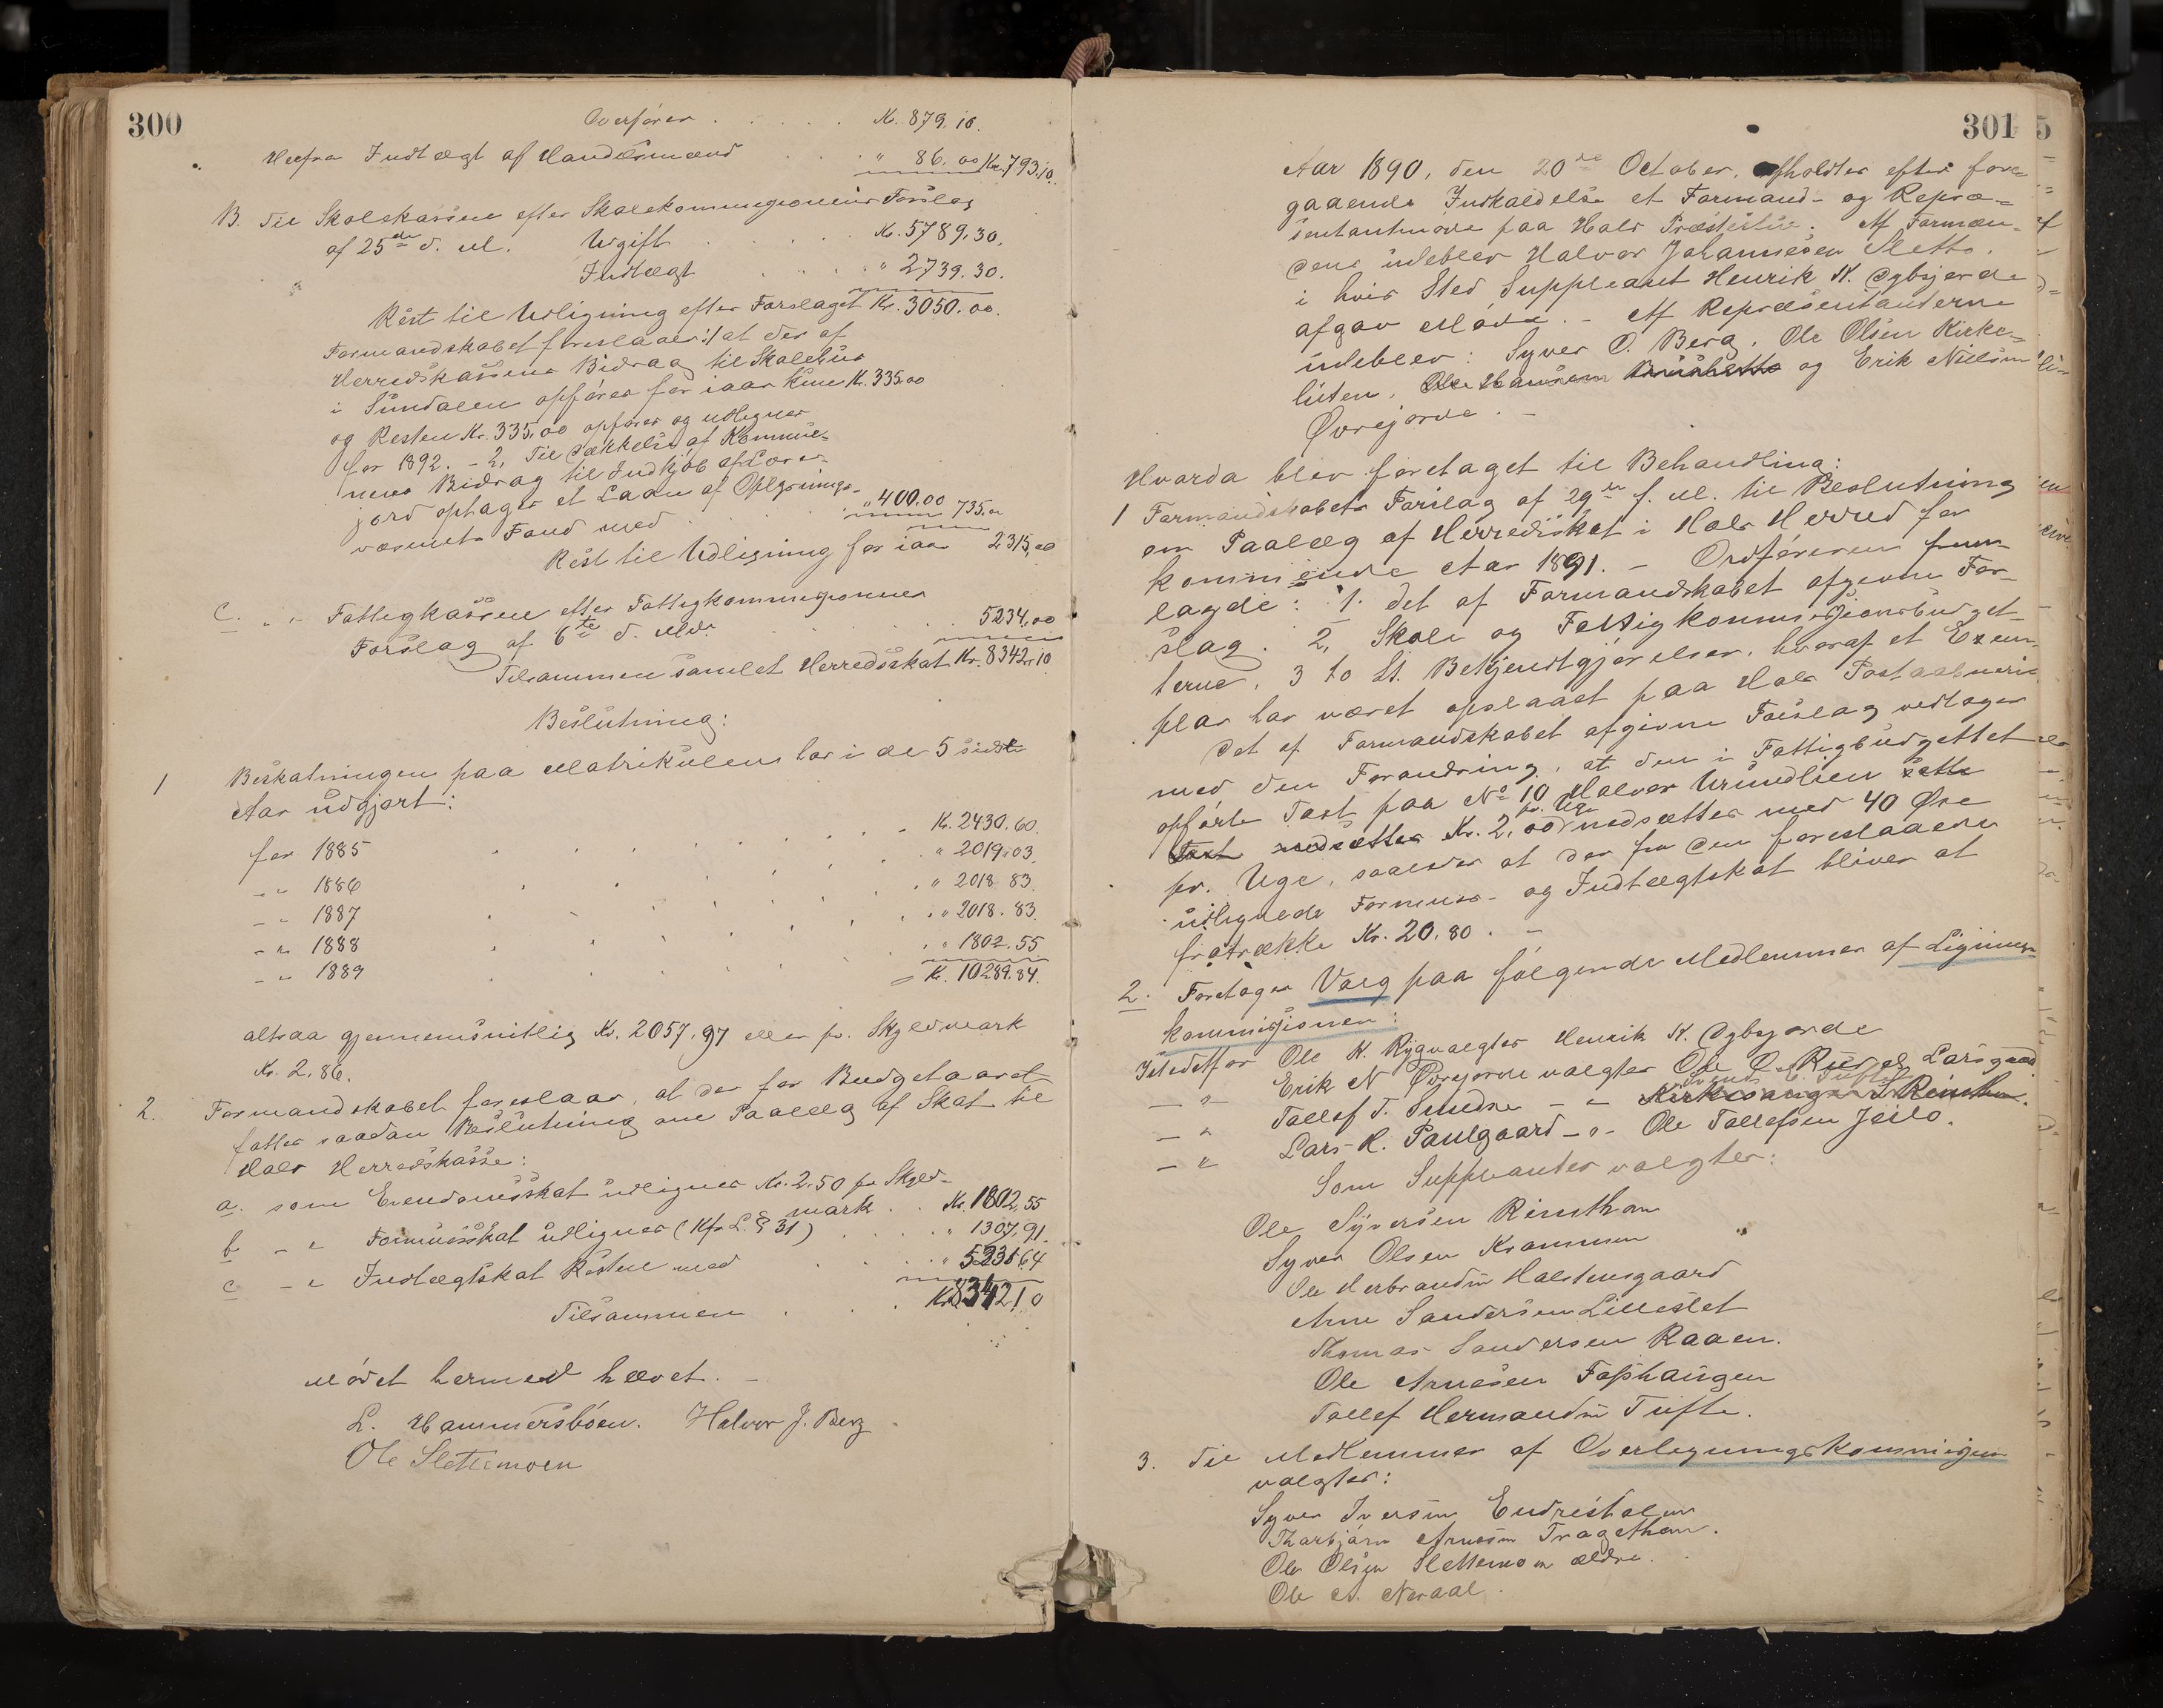 300
Overføres . . . . . Kr. 879.10.
Herfra Indtægt af Haandsmænd . . . " 86.00 Kr. 793.10.
B. Til Skolekassen efter Skolekommissionens Forslag
af 25de d. M. Udgift . . . . Kr. 5789.30.
Indtægt . . . . " 2739.30.
Rest til Udligning efter Forslaget Kr. 3050.00.
Formandskabet foreslaar: 1/ at der af
Herredskassens Bidrag til Skolehus
i Sundalen opføres for iaar kun Kr. 335.00
og Resten Kr. 335.00 opføres og udlignes
for 1892. - 2, Til Dækkelse af Kommu-
nens Bidrag til Indkjøb af
jord optages et Laan af Oplysnings-
væsenets Fond med . . . " 400.00 735.00
Rest til Udligning for iaar 2315,00
C. " - Fattigkassen efter Fattigkommissionens
Forslag af 6te d. Md. . . . . 5234,00
Tilsammen samlet Herredsskat Kr. 8342.10
Beslutning:
1 Beskatningen paa Matrikulen har i de 5 sidste
Aar udgjort:
for 1885 . . . . . Kr. 2430.60.
- " 1886 . . . . . " 2019.03.
- " 1887 . . . . . " 2018 83.
- " 1888 . . . . . " 2018.83.
- " 1889 . . . . . " 1802.55
= Kr. 10289.84.
altsaa gjennemsnitlig Kr. 2057.97 eller pr. Skyldmark
Kr. 2.86.
2. Formandskabet foreslaar, at der for Budgetaaret
fattes saadan Beslutning om Paalæg af Skat til
Hols Herredskasse:
a. som Eiendomsskat udlignes Kr. 2.50 pr Skyld-
mark . . Kr. 1802,55
b - " Formuesskat udlignes (Kfr L. § 31) . . " 1307,91.
c - " Indtægtskat Resten med . . . " 5231.64
Tilsammen . . . Kr. 8342.10
Mødet hermed hævet. -
L. Hammersbøen. Halvor J. Berg
Ole Slettemoen
301
Aar 1890, den 20de October, afholdtes efter fore-
gaaende Indkaldelse et Formand- og Repræ-
sentantmøde paa Hols Præstestue. Af Formæn-
dene udeblev Halvor Johannesen Sletto.
i hvis Sted Suppleant Henrik K. Dybsjorde
afgav Møde. - Af Repræsentanterne
udeblev: Syver O. Berg, Ole Olsen Kirke-
luten, Ole Hansen og Erik Nielsen
Øvrejorde. -
Hvorda blev foretaget til Behandling:
1 Formandskabets Forslag af 29de f. M. til Beslutning
om Paalæg af Herredsskat i Hols Herred for
kommende Aar 1891. - Ordføreren frem-
lagde: 1. det af Formandskabet afgivne For-
slag. 2, Skole og Fattigkommissionsbudget-
terne, 3 to St. Bekjendtgjørelser, hvoraf et Exem-
plar har været opslaaet paa Hols Postaabneri
Det af Formandskabet afgivne Forslag vedtoges
med den Forandring, at den i Fattigbudgettet
opførte Post paa No 10 Halvor Urundlien sættes
Post nedsættes Kr. 2,00 pr. Uge nedsættes med 40 Øre
pr. Uge, saaledes at der fra den foreslaaede
udlignede Formues- og Indtægtskat bliver at
fratrække Kr. 20.80. -
2. Foretoges Valg paa følgende Medlemmer af Lignings-
kommissionen:
Istedetfor Ole K. Rygvalgtes Henrik K. Dybsjorde
- " Erik N Øvrejorde valgtes Ole O. Larsgaard
- " Tollef T. Sundre - " -
- " Lars K. Paulgaard - " - Ole Tollefsen Jeilo.
Som Suppleanter valgtes:
Ole Syversen Rimthan
Syver Olsen Krammen
Ole Herbrandsen Holstensgaard
Arne Sandersen Lilleslet
Thomas Sandersen Raaen.
Ole Arnesen Fosshaugen
Tollef Hermandsen Tufte.
3. Til Medlemmer af Overligningskommissionen
valgtes:
Syver Iversen Endrestølen
Thorbjørn Arnesen Tragethon.
Ole Olsen Slettemoen ældre.
Ole A. Neraal.